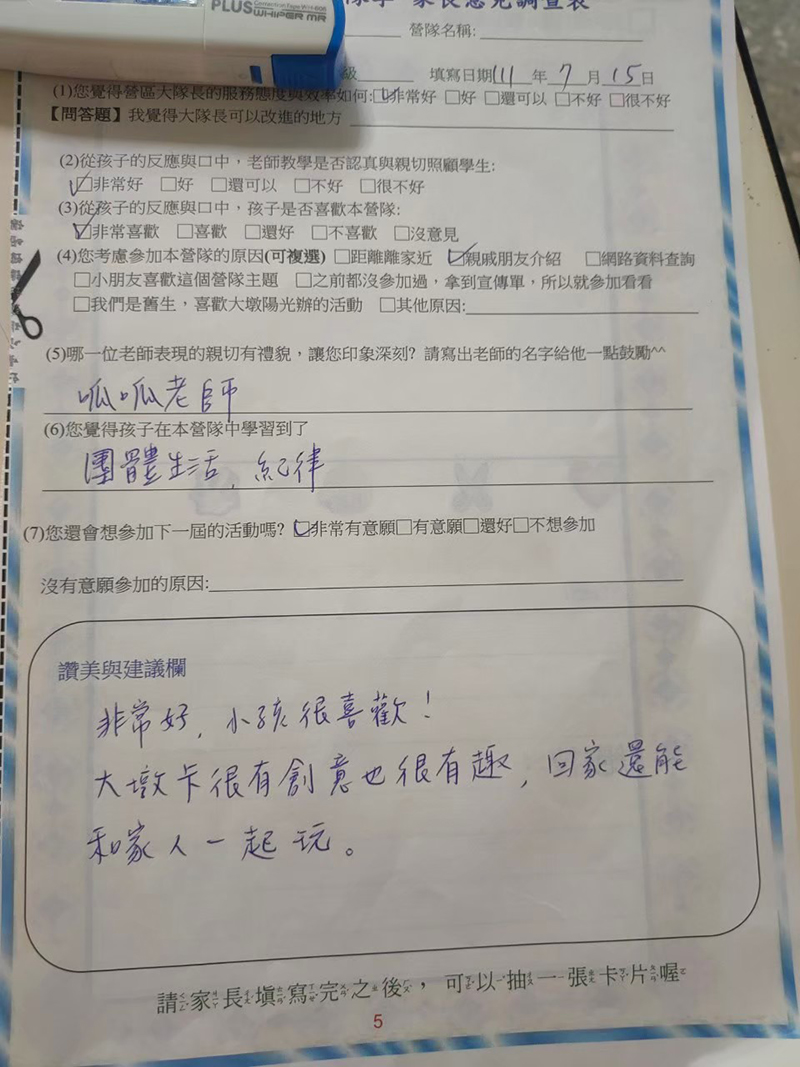 PLUS WHIPER MR
家長意見調查表
營隊名稱:
級 填寫日期111年7月15日
(1)您覺得營區大隊長的服務態度與效率如何:☑非常好 □好 □還可以 □不好 □很不好
【問答題】我覺得大隊長可以改進的地方
(2)從孩子的反應與口中，老師教學是否認真與親切照顧學生:
☑非常好 □好 □還可以 □不好 □很不好
(3)從孩子的反應與口中，孩子是否喜歡本營隊:
☑非常喜歡 □喜歡 □還好 □不喜歡 □沒意見
(4)您考慮參加本營隊的原因(可複選) □距離離家近 ☑親戚朋友介紹 □網路資料查詢
□小朋友喜歡這個營隊主題 □之前都沒參加過，拿到宣傳單，所以就參加看看
□我們是舊生，喜歡大墩陽光辦的活動 □其他原因:
(5)哪一位老師表現的親切有禮貌，讓您印象深刻? 請寫出老師的名字給他一點鼓勵^^
呱呱老師
(6)您覺得孩子在本營隊中學習到了
團體生活, 紀律
(7)您還會想參加下一屆的活動嗎? ☑非常有意願□有意願□還好□不想參加
沒有意願參加的原因:
讚美與建議欄
非常好, 小孩很喜歡!
大墩卡很有創意也很有趣, 回家還能
和家人一起玩。
請家長填寫完之後，可以抽一張卡片喔
5